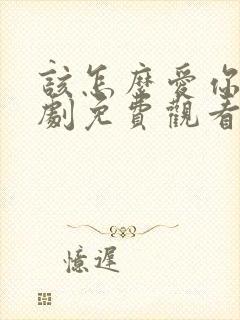 該怎麼愛你
劇免費觀看
憶遲